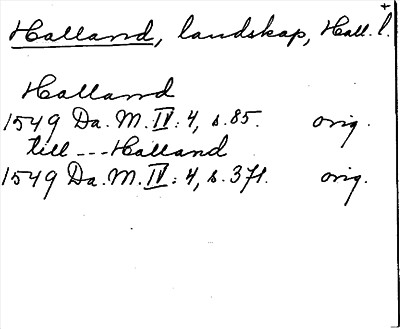 Halland, landskap, Hall. l.
Halland
1549 Da. M. IV: 4, s. 85. orig.
till --- Halland
1549 Da. M. IV: 4, s. 371. orig.